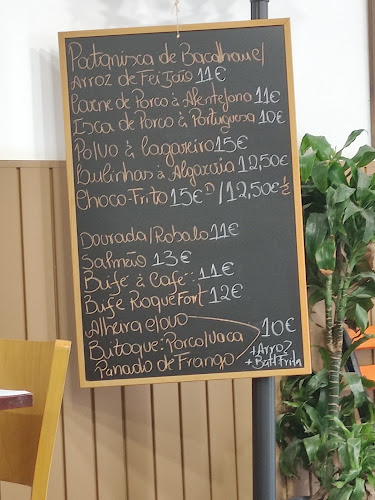 Patanisca de Bacalhau c/
Arroz de Feijão 11€
Carne de Porco à Alentejana 11€
Isca de Porco à Portuguesa 10€
Polvo à Lagareiro 15€
Lulinhas à Algarvia 12,50€
Choco-Frito 15€ D / 12,50€ ½
Dourada/Robalo 11€
Salmão 13€
Bife à Café: 11€
Bife RoqueFort 12€
Alheira e/ovo
Bitoque: Porco/vaca 10€
Panado de Frango
+Arroz
+Batt Frita